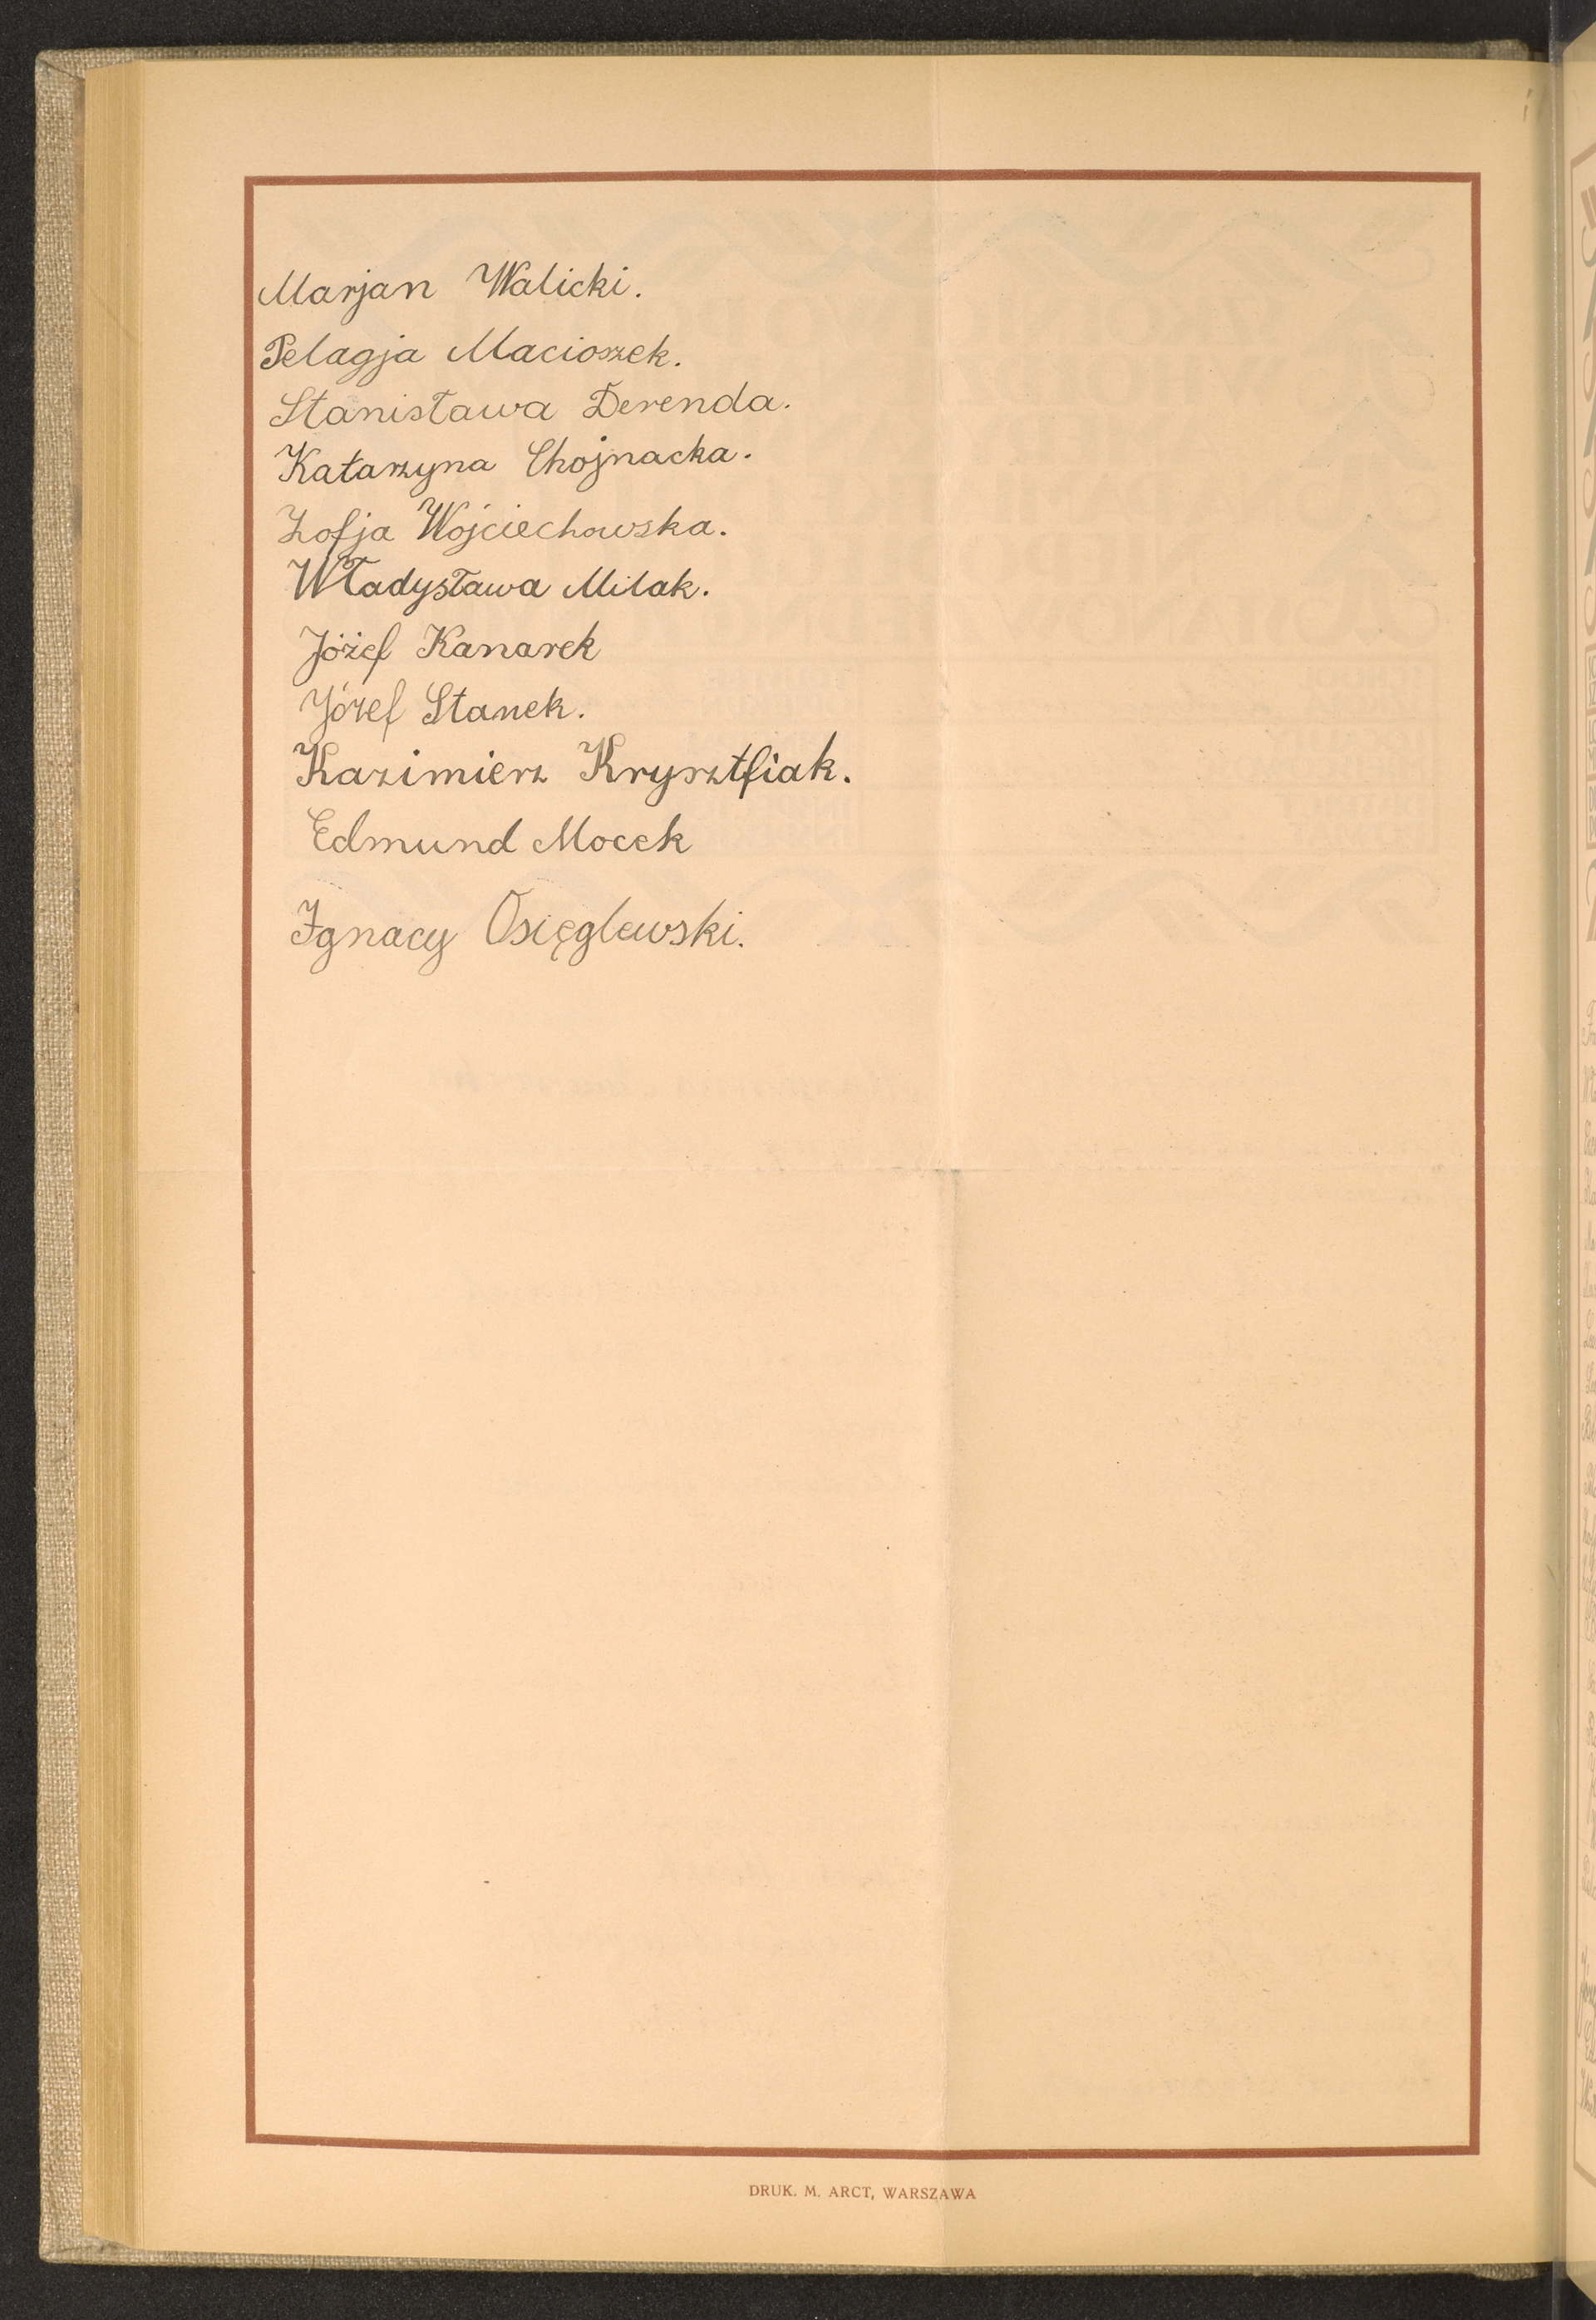 Marjan Walicki.
Pelagja Macioszek.
Stanisława Derenda.
Katarzyna Chojnacka.
Zofja Wojciechowska.
Władysława Milak.
Jóżef Kanarek
Józef Stanek.
Kazimierz Krysztfiak.
Edmund Mocek
Ignacy Osięglewski.
DRUK. M. ARCT, WARSZAWA